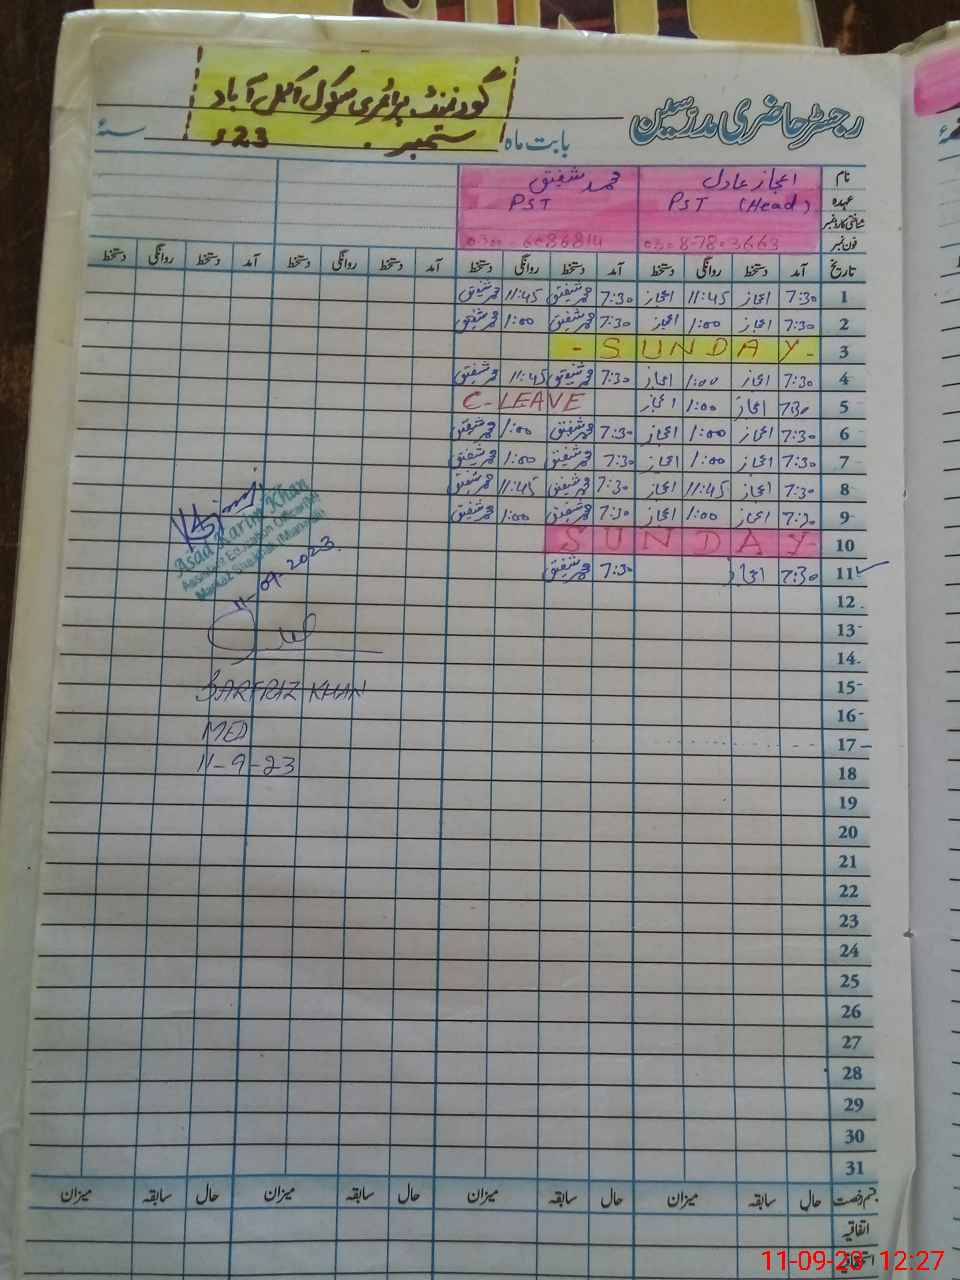 گورنمنٹ پرائمری سکول اکمل آباد
رجسٹر حاضری مدرسین
بابت ماہ ستمبر 23ء سنہ
نام اعجاز عادل محمد شفیق
عہدہ PST (Head) PST
شناختی کارڈ نمبر
فون نمبر
تاریخ آمد دستخط روانگی دستخط آمد دستخط روانگی دستخط آمد دستخط روانگی دستخط آمد دستخط روانگی دستخط
1 7:30 اعجاز 11:45 اعجاز 7:30 محمد شفیق 11:45 محمد شفیق
2 7:30 اعجاز 1:00 اعجاز 7:30 محمد شفیق 1:00 محمد شفیق
3 - SUNDAY -
4 7:30 اعجاز 1:00 اعجاز 7:30 محمد شفیق 11:45 محمد شفیق
5 7:30 اعجاز 1:00 اعجاز C-LEAVE
6 7:30 اعجاز 1:00 اعجاز 7:30 محمد شفیق 1:00 محمد شفیق
7 7:30 اعجاز 1:00 اعجاز 7:30 محمد شفیق 1:00 محمد شفیق
8 7:30 اعجاز 11:45 اعجاز 7:30 محمد شفیق 11:45 محمد شفیق
9 7:30 اعجاز 1:00 اعجاز 7:30 محمد شفیق 1:00 محمد شفیق
10 SUNDAY
11 7:30 اعجاز 7:30 محمد شفیق
Asad Karim Khan
Assistant Education Officer
11-09-2023
12
13
14
SARFRAZ KHAN
15
MED
16
17
11-9-23
18
19
20
21
22
23
24
25
26
27
28
29
30
31
قسم رخصت حال سابقہ میزان حال سابقہ میزان حال سابقہ میزان حال سابقہ میزان
اتفاقیہ
استحقاقیہ
11-09-23 12:27